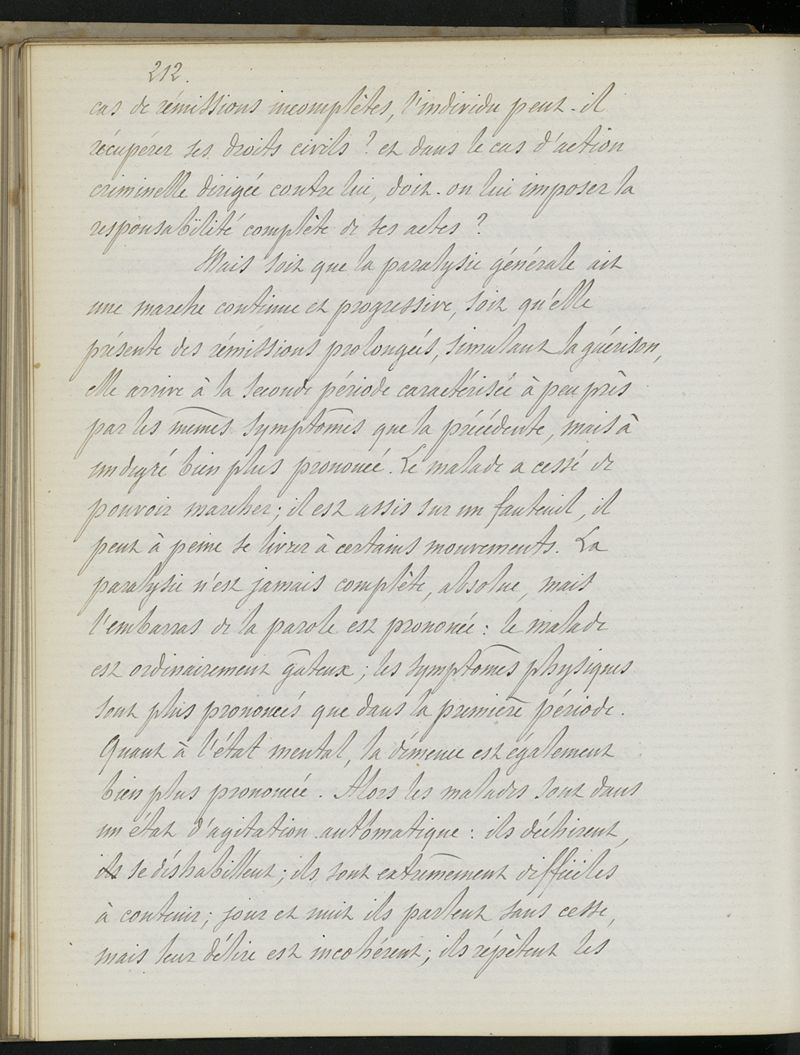 212.
cas de rémissions incomplètes, l'individu peut-il
récupérer ses droits civils ? et dans le cas d'action
criminelle dirigée contre lui, doit-on lui imposer la
responsabilité complète de ses actes ?
Mais soit que la paralysie générale ait
une marche continue et progressive, soit qu'elle
présente des rémissions prolongées, simulant la guérison,
elle arrive à la seconde période caractérisée à peu près
par les mêmes symptômes que la précédente, mais à
un degré bien plus prononcé. Le malade a cessé de
pouvoir marcher ; il est assis sur un fauteuil, il
peut à peine se livrer à certains mouvements. La
paralysie n'est jamais complète, absolue, mais
l'embarras de la parole est prononcé : le malade
est ordinairement gâteux ; les symptômes physiques
sont plus prononcés que dans la première période.
Quant à l'état mental, la démence est également
bien plus prononcée. Alors les malades sont dans
un état d'agitation automatique : ils déchirent,
ils se déshabillent ; ils sont extrêmement difficiles
à contenir ; jour et nuit ils parlent sans cesse,
mais leur délire est incohérent ; ils répètent les